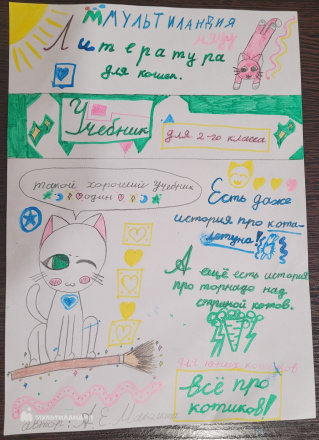 МУЛЬТИЛАНДИЯ
Литература
для кошек.
Учебник
для 2-го класса
такой хороший учебник
один
Есть даже
история про кота-
летуна!
А ещё есть история
про торнадо над
страной котов.
всё про
котиков!
автор
Е.